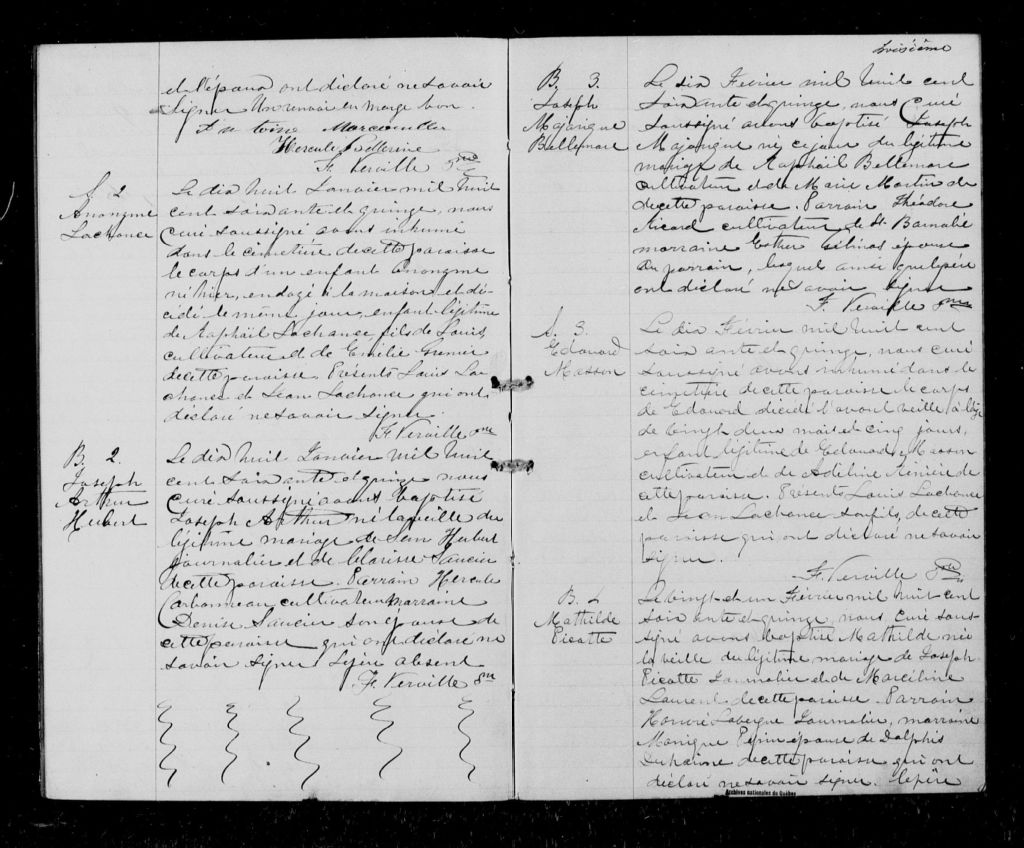 et l'épaux ont déclaré ne savoir
signer Un renvoi en marge bon.
Marcouiller
Hercule Pellerine
F. Verville Ptre
S. 2
Anonyme
Lachance
Le dix huit Janvier mil huit
cent soixante et quinze, nous
Curé soussigné avons inhumé
dans le cimetière de cette paroisse
le corps d'un enfant anonyme
né hier, endoyé à la maison et dé-
cédé le même jour, enfant légitime
de Raphaël Lachance, fils de Louis,
cultivateur et de Emélie Grenier
de cette paroisse. Présents Louis La-
chance et Jean Lachance qui ont
déclaré ne savoir signer.
F. Verville Ptre
B. 2.
Joseph
Arthur
Hebert
Le dix huit Janvier mil huit
cent soixante et quinze nous
Curé soussigné avons baptisé
Joseph Arthur né la veille du
légitime mariage de Jean Hebert
journalier et de Clarisse Saucier
de cette paroisse. Parrain Hercule
Carbonneau cultivateur marraine
Denise Saucier son épouse de
cette paroisse qui ont déclaré ne
savoir signer Le père absent
F. Verville Ptre
troisième
B. 3.
Joseph
Majorique
Bellemare
Le dix Février mil huit cent
soixante et quinze, nous Curé
soussigné avons baptisé Joseph
Majorique né ce jour du légitime
mariage de Raphaël Bellemare
cultivateur et de Marie Martin de
de cette paroisse. Parrain Théodore
Ricard cultivateur de St. Barnabé
marraine Esther Gélinas épouse
du parrain, lesquels ainsi que le père
ont déclaré ne savoir signer
F. Verville Ptre
S. 3.
Edouard
Masson
Le dix Février mil huit cent
soixante et quinze, nous curé
soussigné avons inhumé dans le
cimetière de cette paroisse le corps
de Edouard décédé l'avant veille à l'âge
de vingt deux mois et cinq jours,
enfant légitime de Edouard Masson
cultivateur et de Adéline de
cette paroisse. Présents Louis Lachance
et Jean Lachance son fils, de cette
paroisse qui ont déclaré ne savoir
signer.
F. Verville Ptre
B. 4
Mathilde
Picotte
Le vingt et un Février mil huit cent
soixante et quinze, nous, Curé sous-
signé avons baptisé Mathilde née
la veille du légitime mariage de Joseph
Picotte Journalier et de Marcéline
Laurent de cette paroisse. Parrain
Honoré Laberge Journalier, marraine
Monique Pepin épouse de Dolphis
Duhaime de cette paroisse qui ont
déclaré ne savoir signer. Le père
Archives nationales du Québec